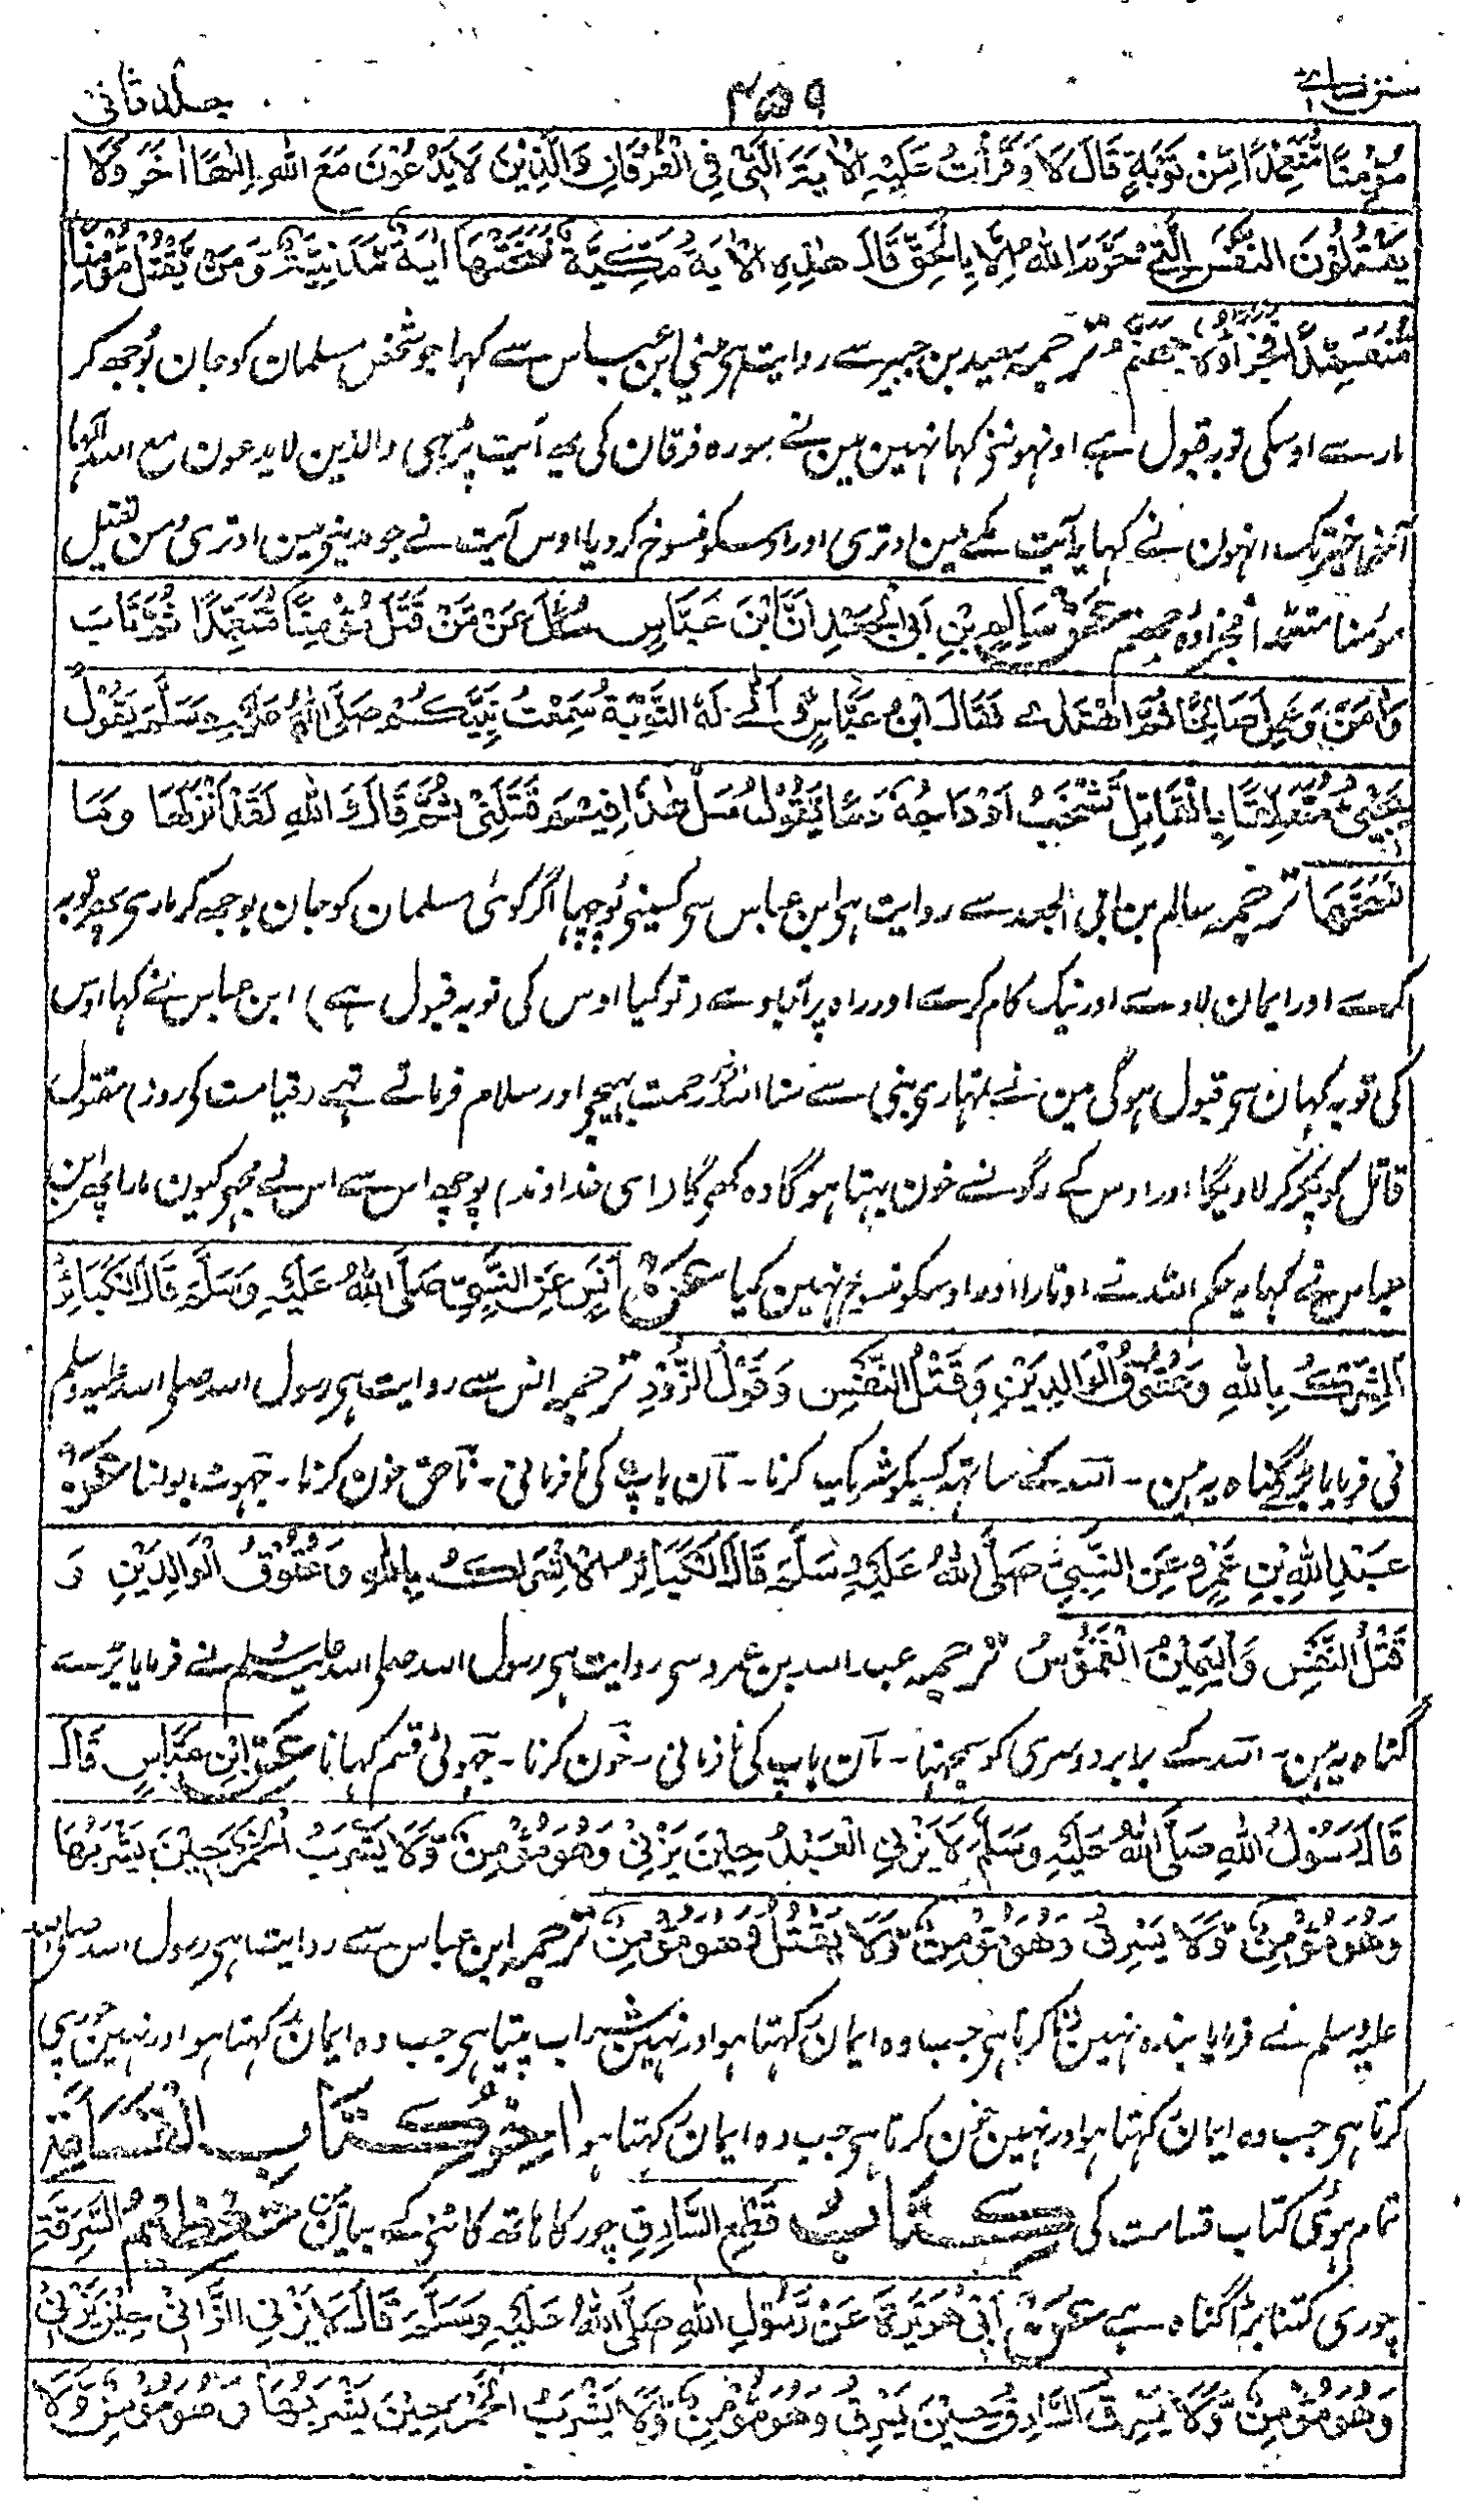 سنن نسائی ۴۵۹ جلد ثانی
مُؤْمِنًا مُّتَعَمِّدًا مِّنْ تَوْبَةٍ قَالَ لَا وَقَرَأْتُ عَلَيْهِ الْاٰيَةَ الَّتِیْ فِی الْفُرْقَانِ وَالَّذِيْنَ لَا يَدْعُوْنَ مَعَ اللّٰهِ اِلٰهًا اٰخَرَ وَلَا
يَقْتُلُوْنَ النَّفْسَ الَّتِیْ حَرَّمَ اللّٰهُ اِلَّا بِالْحَقِّ قَالَ هٰذِهِ الْاٰيَةُ مَكِّيَّةٌ نَسَخَتْهَا اٰيَةٌ مَّدَنِيَّةٌ وَمَنْ يَّقْتُلْ مُؤْمِنًا
مُّتَعَمِّدًا فَجَزَاؤُهٗ جَهَنَّمُ ترجمہ سعید بن جبیر سے روایت ہی مینی ابن عباس سے کہا جو شخص مسلمان کو جان بُوجھ کر
مارے اوسکی توبہ قبول ہے اونہونی کہا نہین مین نے سورہ فرقان کی یہ آیت پڑہی والذین لا یدعون مع اللہ الٰہا
آخر اخیر تک انہون نے کہا یہ آیت مکے مین اوتری اور اوسکو منسوخ کر دیا اوس آیت نے جو مدینی مین اوتری ومن یقتل
مؤمنا متعمدا فجزاؤہ جہنم عَنْ سَالِمِ بْنِ اَبِی الْجَعْدِ اَنَّ ابْنَ عَبَّاسٍ سُئِلَ عَنْ مَّنْ قَتَلَ مُؤْمِنًا مُّتَعَمِّدًا ثُمَّ تَابَ
وَاٰمَنَ وَعَمِلَ صَالِحًا ثُمَّ اهْتَدٰى فَقَالَ ابْنُ عَبَّاسٍ وَّاَنّٰى لَهُ التَّوْبَةُ سَمِعْتُ نَبِيَّكُمْ صَلَّى اللّٰهُ عَلَيْهِ وَسَلَّمَ يَقُوْلُ
يَجِیْءُ مُتَعَلِّقًا بِالْقَاتِلِ تَشْخُبُ اَوْدَاجُهٗ دَمًا يَّقُوْلُ سَلْ هٰذَا فِيْمَ قَتَلَنِیْ ثُمَّ قَالَ وَاللّٰهِ لَقَدْ اَنْزَلَهَا وَمَا
نَسَخَهَا ترجمہ سالم بن ابی الجعد سے روایت ہی ابن عباس سی کسینی پُوچہا اگر کوئی مسلمان کو جان بوجھ کر ماری پھر توبہ
کرے اور ایمان لاوے اور نیک کام کرے اور راہ پر آجاوے (تو کیا اوس کی توبہ قبول ہے) ابن عباس نے کہا اوس
کی توبہ کہان سی قبول ہوگی مین نے تمہاری نبی سے سنا اللہ رحمت بہیجی اور سلام فرماتے تہے (قیامت کی روز) مقتول
قاتل کو پکڑ کر لاویگا اور اوس کے رگونسے خون بہتا ہوگا وہ کہیگا (ای خداوند) پوچھ اس سے اس نے مجہو کیون مارا پہر ابن
عباس نے کہا یہ حکم اللہ نے اوتارا اور اوسکو منسوخ نہین کیا عَنْ اَنَسٍ عَنِ النَّبِیِّ صَلَّى اللّٰهُ عَلَيْهِ وَسَلَّمَ قَالَ الْكَبَائِرُ
اَلشِّرْكُ بِاللّٰهِ وَعُقُوْقُ الْوَالِدَيْنِ وَقَتْلُ النَّفْسِ وَقَوْلُ الزُّوْرِ ترجمہ انس سے روایت ہی رسول اللہ صلی اللہ علیہ وسلم
نی فرمایا بڑے گناہ یہ ہین ۔ اللہ کے ساتہہ کسیکو شریک کرنا ۔ مان باپ کی نافرمانی ۔ ناحق خون کرنا ۔ جہوٹ بولنا عَنْ
عَبْدِ اللّٰهِ بْنِ عَمْرٍو عَنِ النَّبِیِّ صَلَّى اللّٰهُ عَلَيْهِ وَسَلَّمَ قَالَ الْكَبَائِرُ الْاِشْرَاكُ بِاللّٰهِ وَعُقُوْقُ الْوَالِدَيْنِ وَ
قَتْلُ النَّفْسِ وَالْيَمِيْنُ الْغَمُوْسُ ترجمہ عبد اللہ بن عمرو سی روایت ہی رسول اللہ صلی اللہ علیہ وسلم نے فرمایا بڑے
گناہ یہ ہین ۔ اللہ کے برابر دوسری کو سمجہنا ۔ مان باپ کی نافرمانی ۔ خون کرنا ۔ جہوٹی قسم کہانا عَنِ ابْنِ عَبَّاسٍ قَالَ
قَالَ رَسُوْلُ اللّٰهِ صَلَّى اللّٰهُ عَلَيْهِ وَسَلَّمَ لَا يَزْنِی الْعَبْدُ حِيْنَ يَزْنِیْ وَهُوَ مُؤْمِنٌ وَّلَا يَشْرَبُ الْخَمْرَ حِيْنَ يَشْرَبُهَا
وَهُوَ مُؤْمِنٌ وَّلَا يَسْرِقُ وَهُوَ مُؤْمِنٌ وَّلَا يَقْتُلُ وَهُوَ مُؤْمِنٌ ترجمہ ابن عباس سے روایت ہی رسول اللہ صلی اللہ
علیہ وسلم نے فرمایا بندہ نہین زنا کرتا ہی جب وہ ایمان رکہتا ہو اور نہین شراب پیتا ہی جب وہ ایمان رکہتا ہو اور نہین چوری
کرتا ہی جب وہ ایمان رکہتا ہو اور نہین خون کرتا ہی جب وہ ایمان رکہتا ہو اٰخِرُ كِتَابِ الْقَسَامَةِ
تمام ہوئی کتاب قسامت کی كِتَابُ قَطْعِ السَّارِقِ چور کا ہاتھ کاٹنی کے بیان مین تَعْظِيْمُ السَّرِقَةِ
چوری کتنا بڑا گناہ ہے عَنْ اَبِیْ هُرَيْرَةَ عَنْ رَّسُوْلِ اللّٰهِ صَلَّى اللّٰهُ عَلَيْهِ وَسَلَّمَ قَالَ لَا يَزْنِی الزَّانِیْ حِيْنَ يَزْنِیْ
وَهُوَ مُؤْمِنٌ وَّلَا يَسْرِقُ السَّارِقُ حِيْنَ يَسْرِقُ وَهُوَ مُؤْمِنٌ وَّلَا يَشْرَبُ الْخَمْرَ حِيْنَ يَشْرَبُهَا وَهُوَ مُؤْمِنٌ وَّلَا